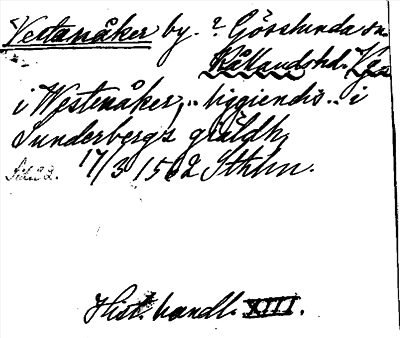 Vestanåker by. ? Gösslunda sn.
Kållands hd. Vg.
i Westenåker, .. liggiendis .. i
Sunderbergs gieldh,
17/3 1562 Sthlm.
Hist. handl. XIII.